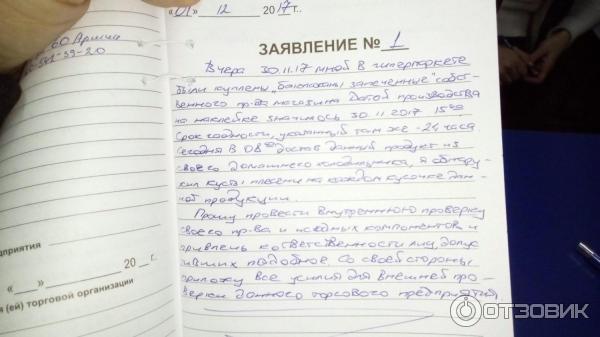 «01» 12 2017г.
ЗАЯВЛЕНИЕ № 1
60 Арина
39-20
Вчера 30.11.17 мной в гипермаркете
были куплены "баклажаны запеченные" собст-
венного пр-ва магазина. Датой производства
на наклейке значилось 30.11.2017 15⁰⁰
Срок годности, указанный там же - 24 часа
Сегодня в 08⁰⁰ достав данный продукт из
своего домашнего холодильника, я обнару-
жил кусты плесени на каждом кусочке дан-
ной продукции.
Прошу провести внутреннюю проверку
своего пр-ва и исходных компонентов и
привлечь к ответственности лиц, допус
тивших подобное. Со своей стороны
приложу все усилия для внешней про-
верки данного торгового предприятия.
дприятия
«___»______ 20__г.
я (ей) торговой организации
ОТЗОВИК